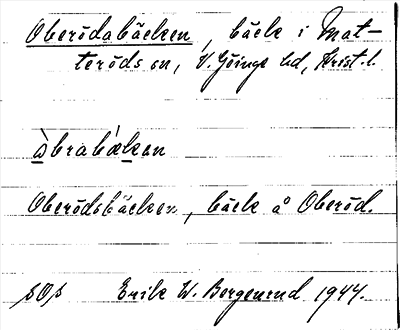 Oberödabäcken, bäck i Mat-
teröds sn, V. Göinge hd, Krist. l.
àbrabǽkən
Oberödsbäcken, bäck å Oberöd.
sOs Erik W. Bergenrud 1944.